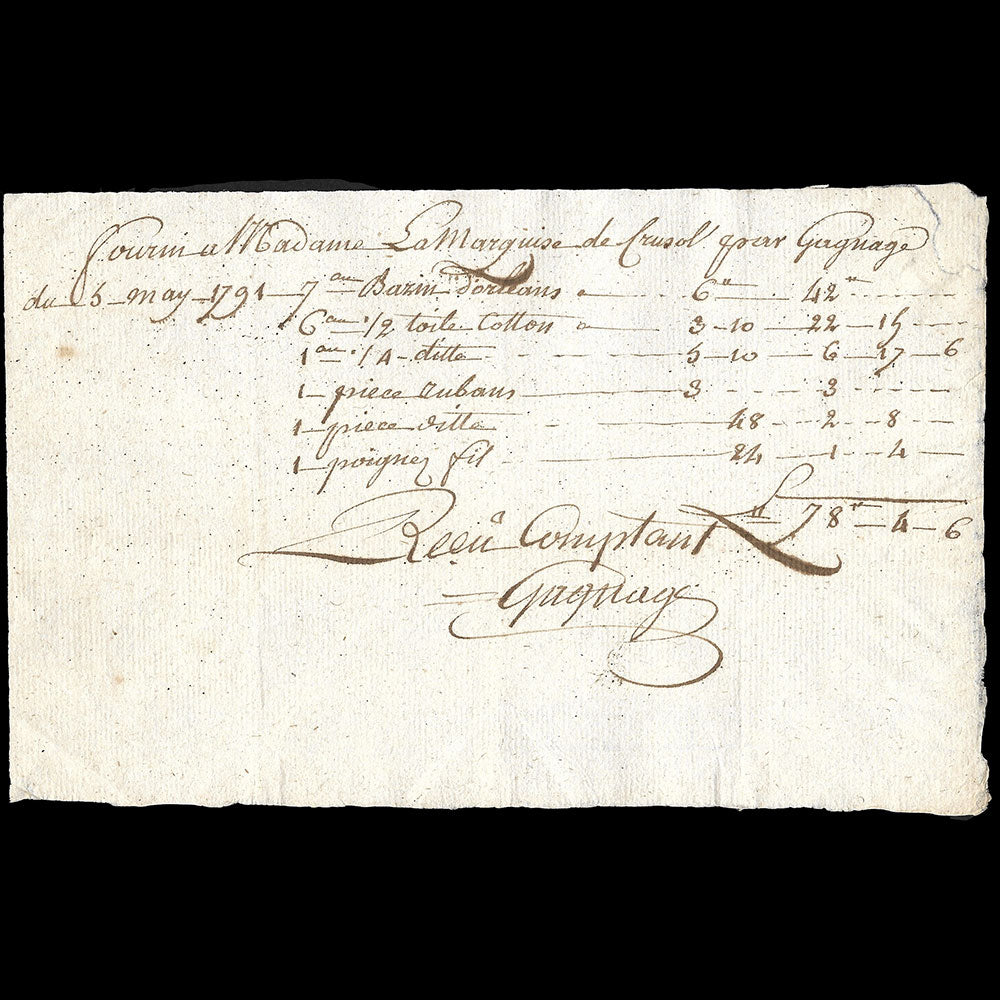 fourni a Madame La Marquise de Crusol par Gagnage
du 5 may 1791 7 au Bazin d'orleans a 6" 42"
6 au 1/2 toile Cotton a 3 10 22 15
1 au 1/4 ditte 5 10 6 17 6
1 piece rubans 3 3
1 piece ditte 48 2 8
1 poignez fil 24 1 4
78" 4 6
Reçu Comptant
Gagnage